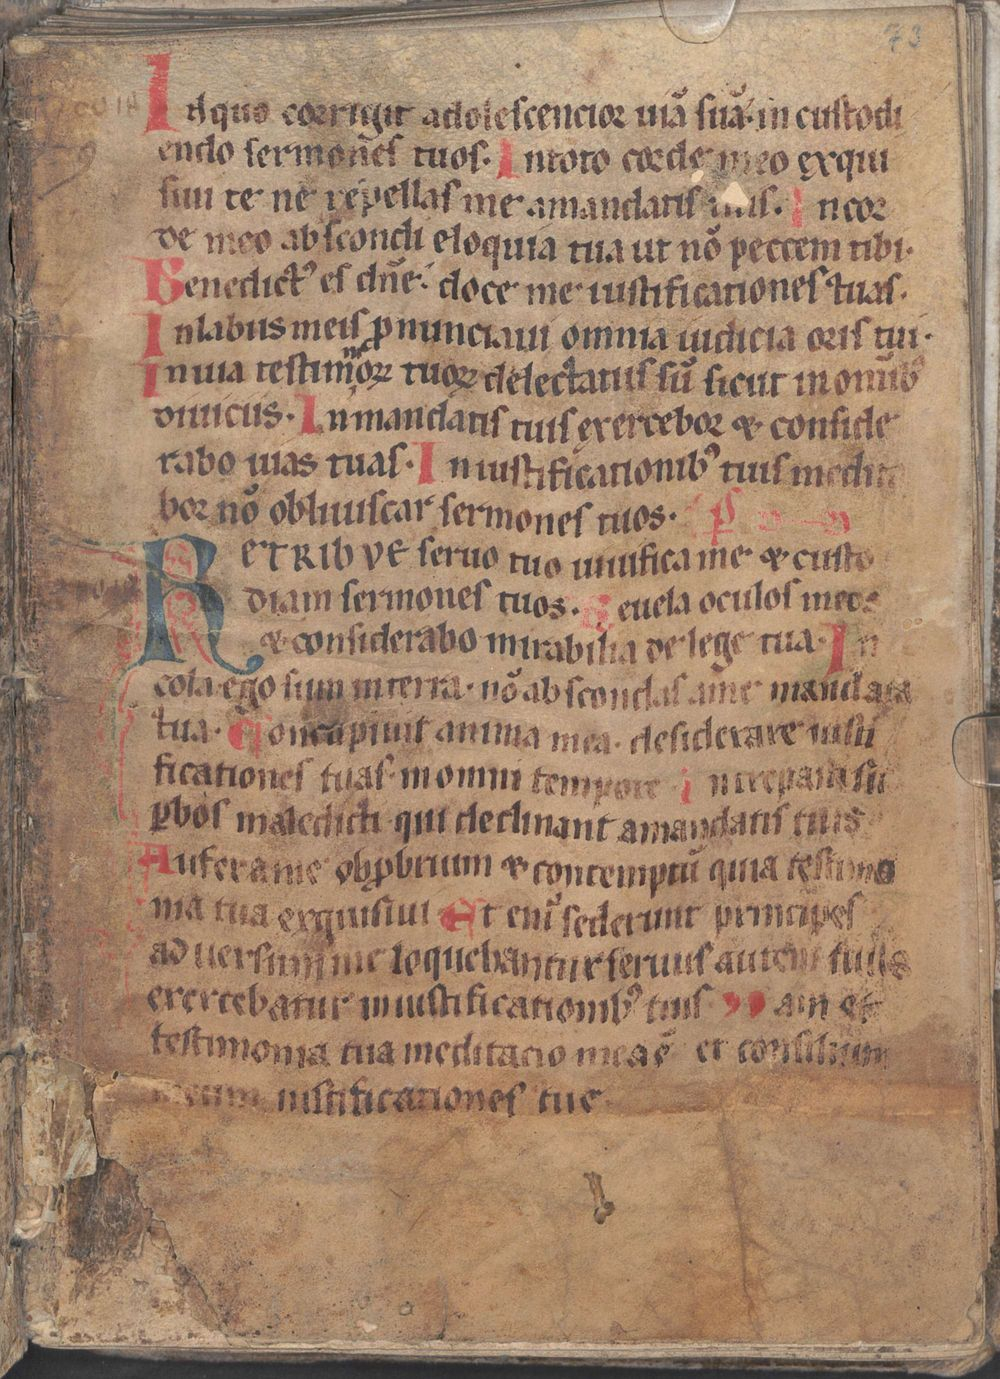 73
Idquo corrigit adolescencior uiā suā· in custodi
endo sermones tuos· Intoto corde meo exqui
siui te ne repellas me amandatis tuis· Incor
de meo abscondi eloquia tua ut nō peccem tibi·
Benedictꝰ es dn̄e· doce me iustificationes tuas·
Inlabiis meis ꝓnunciaui omnia iudicia oris tui·
Inuia testimoniorꝝ tuorꝝ delectatus sū sicut inomībꝰ
diuiciis· Inmandatis tuis exercebor & conside
rabo uias tuas· Iniustificationibꝰ tuis medita
bor nō obliuiscar sermones tuos·
RETRIBVE seruo tuo uiuifica me & custo
diam sermones tuos· Reuela oculos meos
& considerabo mirabilia de lege tua· In
cola ego sum interra· nō abscondas ame mandata
tua· Concupiuit anima mea· desiderare iusti
ficationes tuas inomni tempore Increpasti su
ꝑbos maledicti qui declinant amandatis tuis
Aufer ame obꝓbrium & contemptū quia testimo
nia tua exquisiui Et eniʼ sederunt principes
aduersum me loquebantur seruus autem tuus
exercebatur iniustificationibꝰ tuis Nam et
testimonia tua meditacio mea ē et consilium
meum iustificationes tue